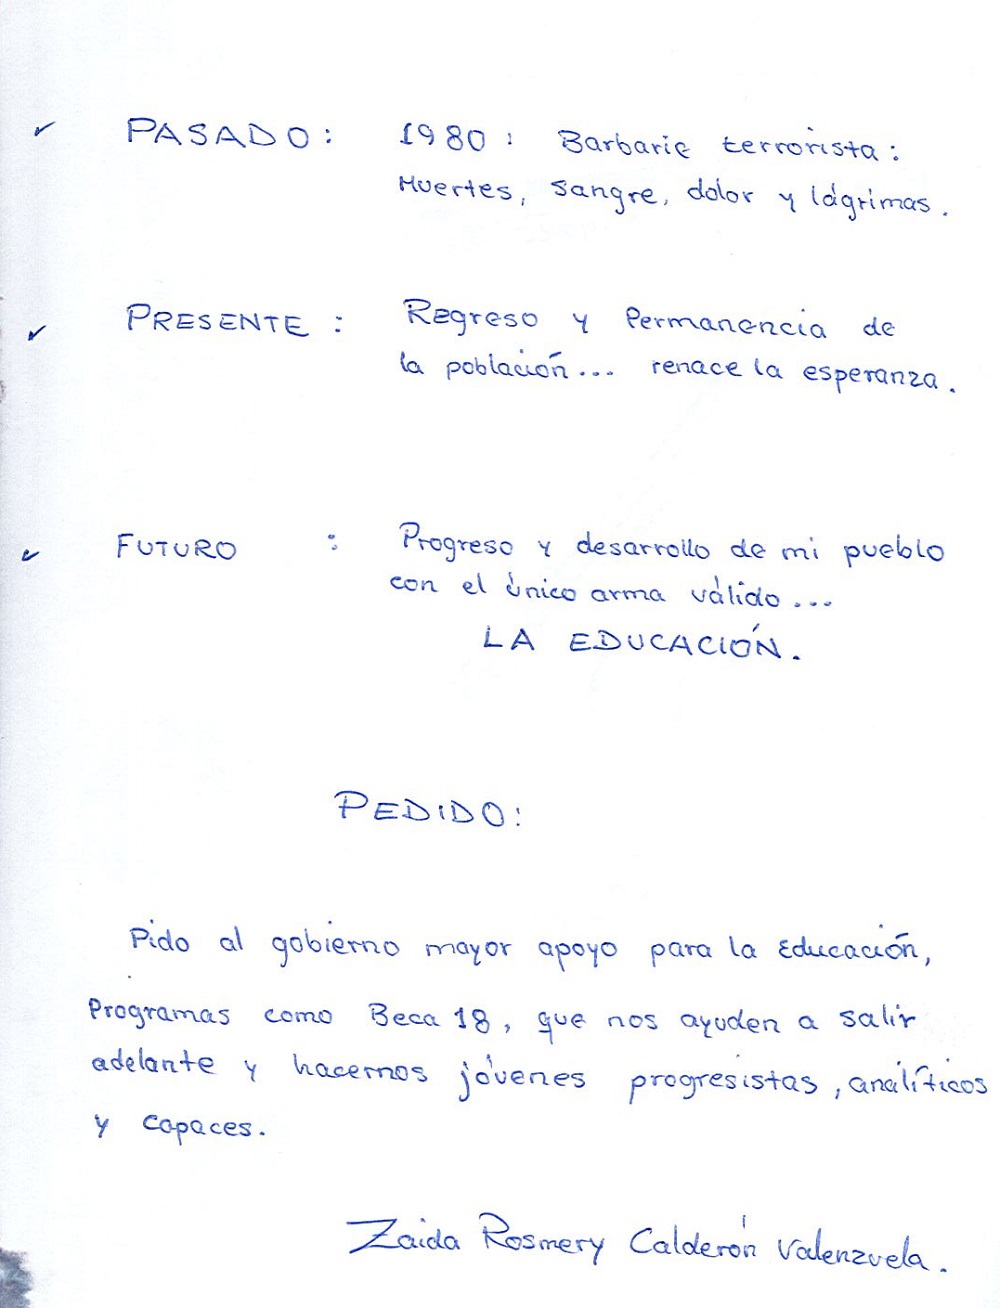 ✓ PASADO: 1980: Barbarie terrorista:
Muertes, sangre, dolor y lágrimas.
✓ PRESENTE: Regreso y Permanencia de
la población... renace la esperanza.
✓ FUTURO : Progreso y desarrollo de mi pueblo
con el único arma válido...
LA EDUCACIÓN.
PEDIDO:
Pido al gobierno mayor apoyo para la Educación,
Programas como Beca 18, que nos ayuden a salir
adelante y hacernos jóvenes progresistas, analíticos
y capaces.
Zaida Rosmery Calderón Valenzuela.